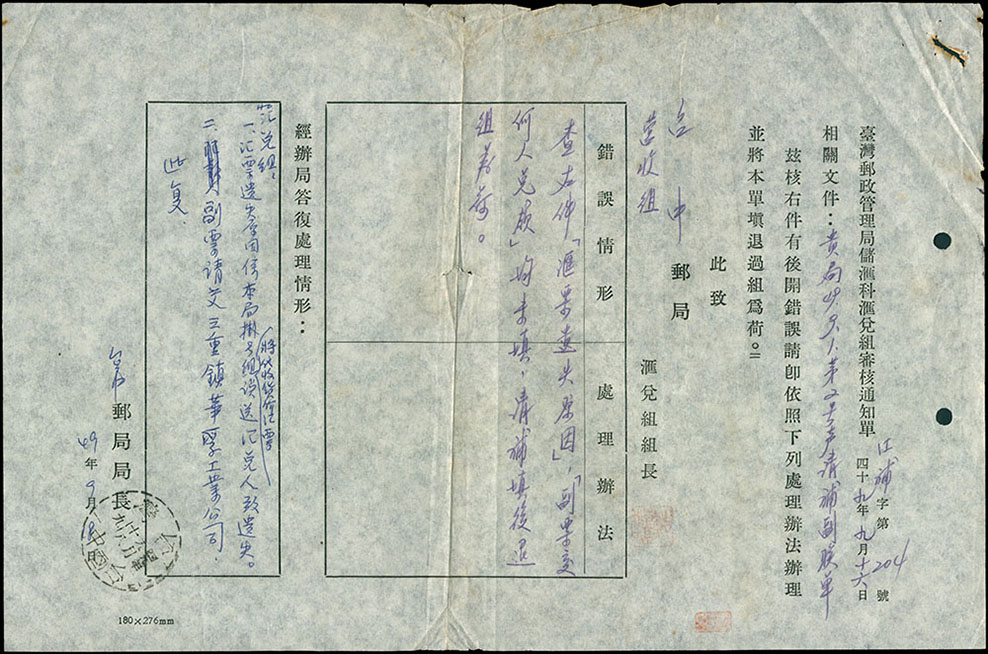 臺灣郵政管理局儲滙科滙兌組審核通知單
江補字第204號
四十九年九月十六日
相關文件：貴局49.9.1.第2号声请補副票单
茲核右件有後開錯誤請卽依照下列處理辦法辦理
並將本單塡退過組爲荷。=
此致
台中郵局
营收组
滙兌組組長
錯誤情形
處理辦法
查右件「滙票遗失原因」，「副票交
何人兑领」均未填，请補填後退
组为荷。
經辦局答復處理情形：
汇兑组：
一、汇票遗失原因係本局掛号组
将签发给汇票
误送汇兑人致遗失。
二、副票请交三重鎮華孚工業公司.
此复.
台中郵局局長
49年9月 日
180×276mm